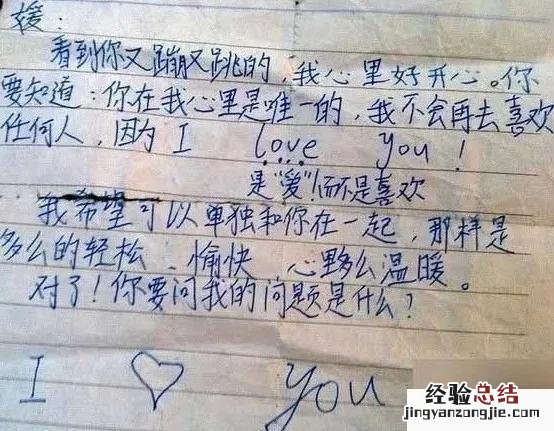 媛：
看到你又蹦又跳的，我心里好开心。你
要知道：你在我心里是唯一的，我不会再去喜欢
任何人，因为I love you！
是“爱”！而不是喜欢
我希望可以单独和你在一起，那样是
多么的轻松、愉快、心野多么温暖。
对了！你要问我的问题是什么？
I ♡ you
经验总结
jingyanzongjie.com